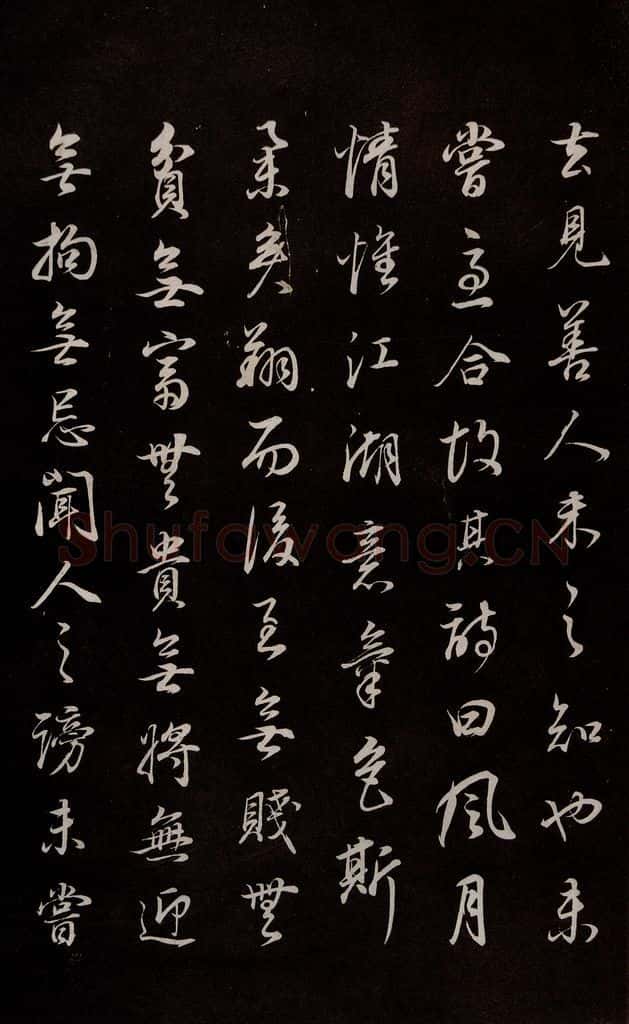 去見善人未之知也未
嘗急合故其詩曰風月
情懷江湖意氣色斯
舉矣翔而後至無賤無
貧無富無貴無將無迎
無拘無忌聞人之謗未嘗
Shufawang.CN